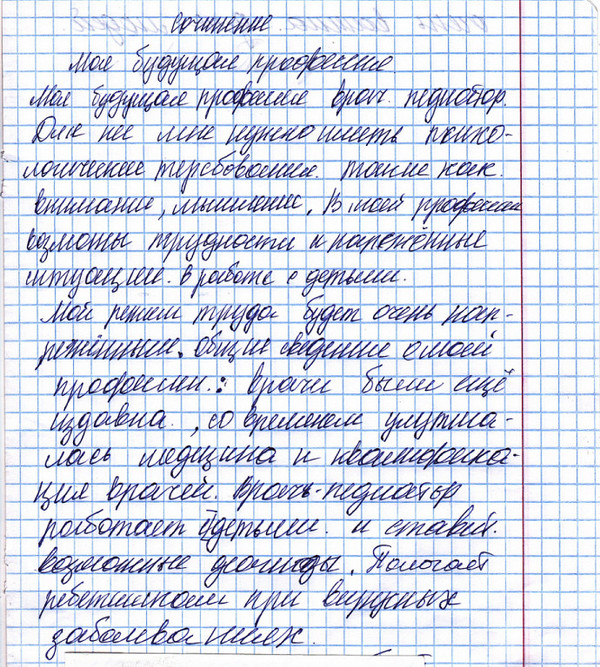 сочинение
Моя будущая профессия.
Моя будущая професия врач педиатор.
Для неё мне нужно иметь психо-
логическое теребования. такие как.
внимание, мышление. В моей професии
возможы трудности и напрежённые
ситуации. в работе с детьми.
Мой режим труда будет очень нап-
режённым. общие сведение о моей
професии: врачи были ещё
издавна, со временем улутша-
лась медицина и
ция врачей. Врачь-педиатор
работает с детьми. и ставит.
возможные Помогает
ребетишкам при вирузных
заболеваниях.